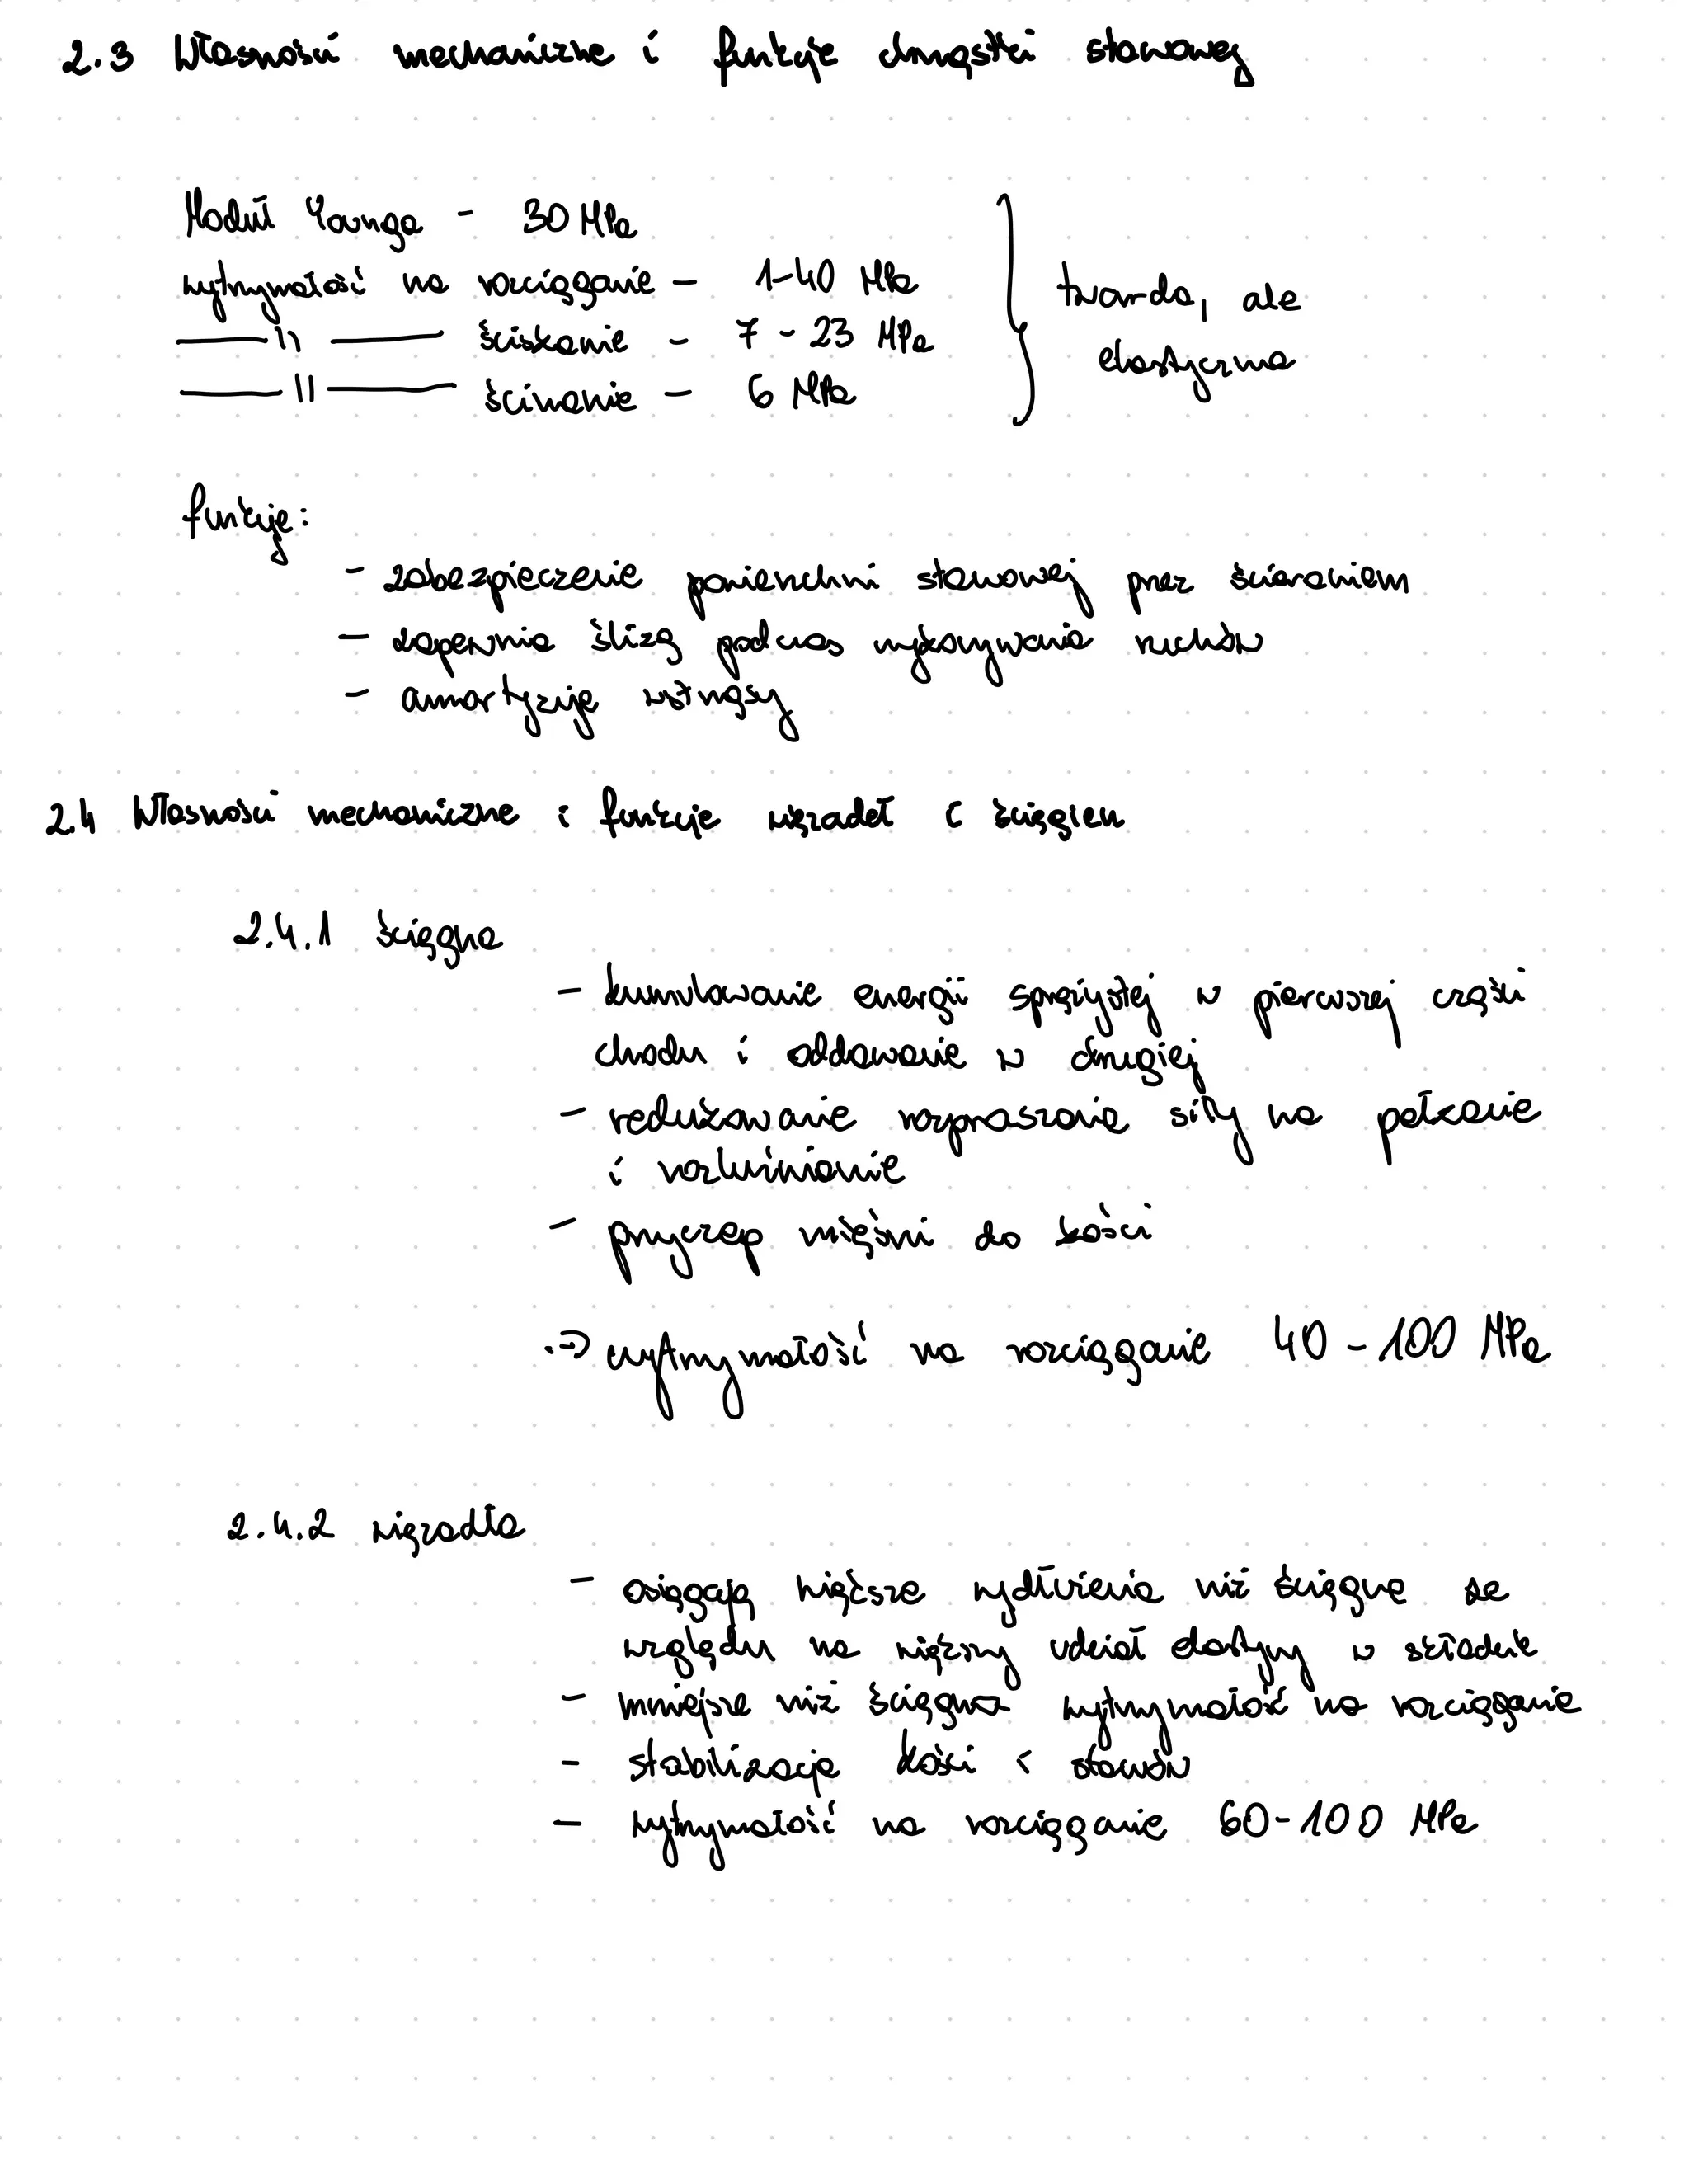 2.3 Własności mechaniczne i funkcje chrząstki stawowej
Moduł Younga - 30 MPa
wytrzymałość na rozciąganie - 1-40 MPa
—— 11 —— ściskanie - 7 - 23 MPa
—— 11 —— ścinanie - 6 MPa
twarda, ale
elastyczna
funkcje:
- zabezpieczenie powierzchni stawowej przez ścieraniem
- zapewnia ślizg podczas wykonywania ruchów
- amortyzuje wstrząsy
2.4 Własności mechaniczne i funkcje więzadeł i ścięgien
2.4.1 ścięgna
- kumulowanie energii sprężystej w pierwszej części
chodu i oddawanie w drugiej
- redukowanie rozpraszania siły na pełzanie
i rozluźnianie
- przyczep mięśni do kości
⇒ wytrzymałość na rozciąganie 40 - 100 MPa
2.4.2 więzadła
- osiągają większe wydłużenia niż ścięgna ze
względu na większy udział elastyny w składzie
- mniejsza niż ścięgna wytrzymałość na rozciąganie
- stabilizacja kości i stawów
- wytrzymałość na rozciąganie 60-100 MPa